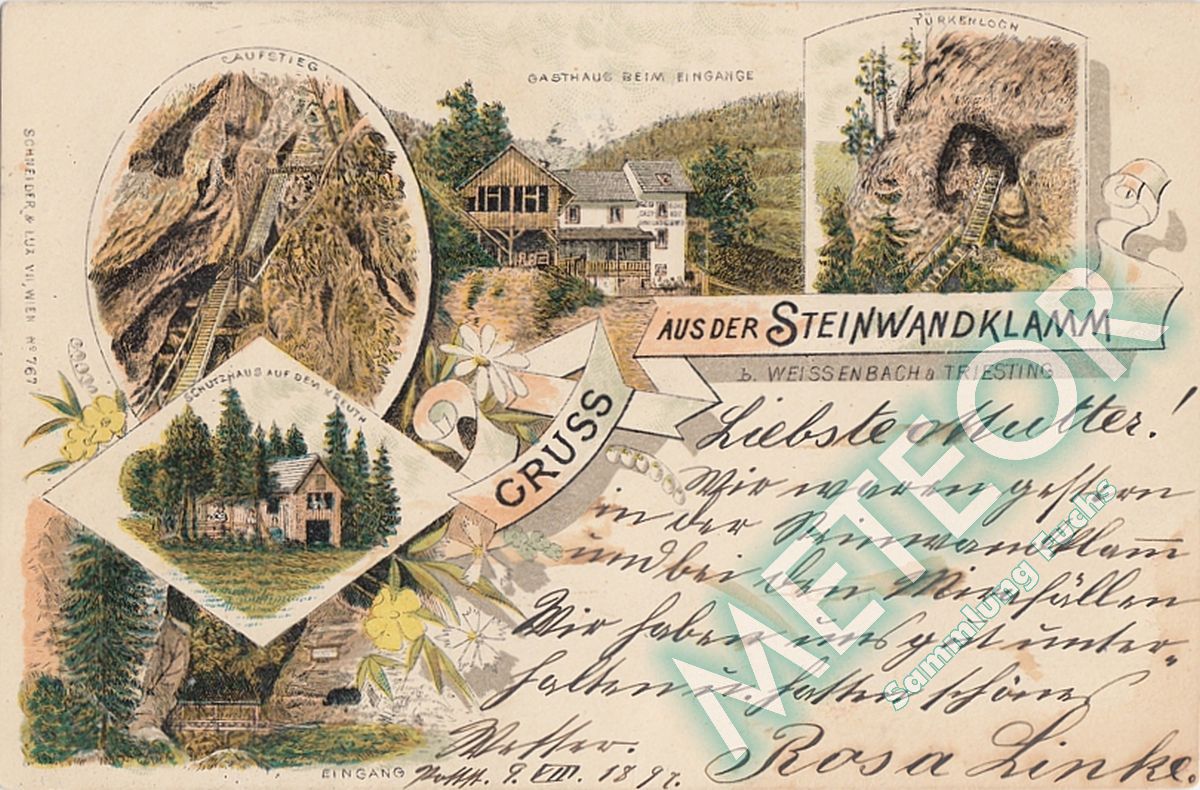 AUFSTIEG
GASTHAUS BEIM EINGANGE
TÜRKENLOCH
SCHNEIDER & LUX VII, WIEN No 767
SCHUTZHAUS AUF DEM KREUTH
GRUSS
AUS DER STEINWANDKLAMM
b. WEISSENBACH a TRIESTING
Liebste Mutter!
Wir waren gestern
in der Steinwandklam̄
und bei den Mirafällen
Wir haben uns gut unter-
halten u. hatten schönes
Wetter.
Rosa Linke.
EINGANG
9. VIII. 1897.
METEOR
Sammlung Fuchs